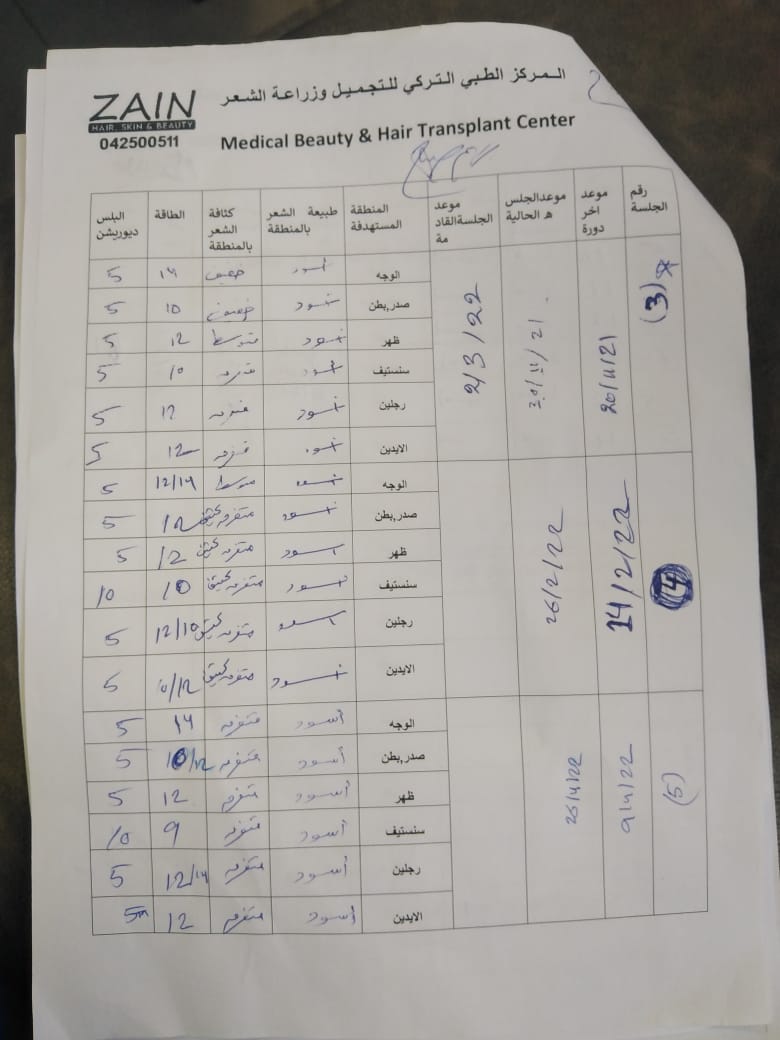 ZAIN
HAIR, SKIN & BEAUTY
042500511
المركز الطبي التركي للتجميل وزراعة الشعر
Medical Beauty & Hair Transplant Center
رقم الجلسة | موعد اخر دورة | موعدالجلسه الحالية | موعد الجلسةالقادمة | المنطقة المستهدفة | طبيعة الشعر بالمنطقة | كثافة الشعر بالمنطقة | الطاقة | البلس ديوريشن
(3) | 20/11/21 | 30/11/21 | 2/3/22
الوجه | اسود | خفيف | 14 | 5
صدر,بطن | اسود | خفيف | 10 | 5
ظهر | اسود | متوسط | 12 | 5
سنستيف | اسود | 10 | 5
رجلين | اسود | متفرقه | 12 | 5
الايدين | اسود | متفرقه | 12 | 5
4 | 14/2/22 | 26/2/22
الوجه | اسود | متوسط | 12/14 | 5
صدر,بطن | اسود | متفرقه | 12 | 5
ظهر | اسود | متفرقه | 12 | 5
سنستيف | اسود | متفرقه | 10 | 10
رجلين | اسود | متفرقه | 12/10 | 5
الايدين | اسود | متفرقه | 10/12 | 5
(5) | 9/4/22 | 25/4/22
الوجه | أسود | متفرقه | 14 | 5
صدر,بطن | أسود | متفرقه | 10/12 | 5
ظهر | أسود | متفرقه | 12 | 5
سنستيف | أسود | متفرقه | 9 | 10
رجلين | أسود | متفرقه | 12/14 | 5
الايدين | أسود | متفرقه | 12 | 5